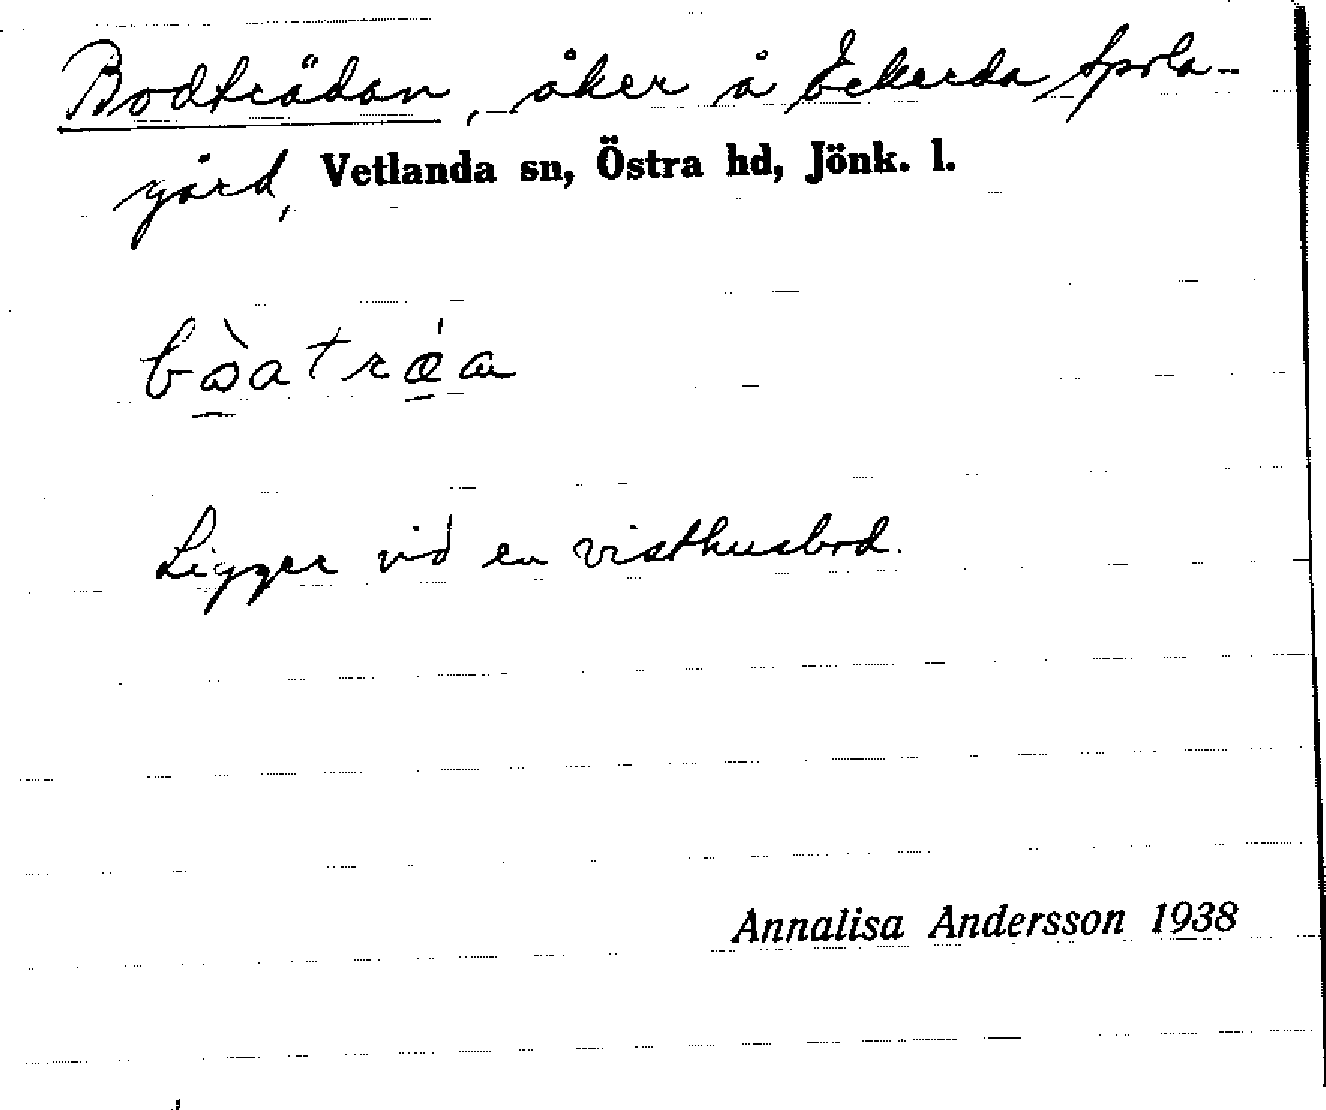 Bodträdan, åker å Eckerda Spola-
gård, Vetlanda sn, Östra hd, Jönk. l.
Ligger vid en visthusbod.
Annalisa Andersson 1938